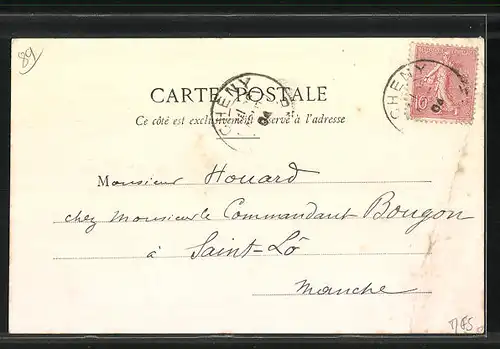 89
CARTE POSTALE
Ce côté est exclusivement réservé à l'adresse
CHENY
04
CHENY
04
10
Monsieur Houard
chez Monsieur le Commandant Bougon
à Saint-Lô
Manche